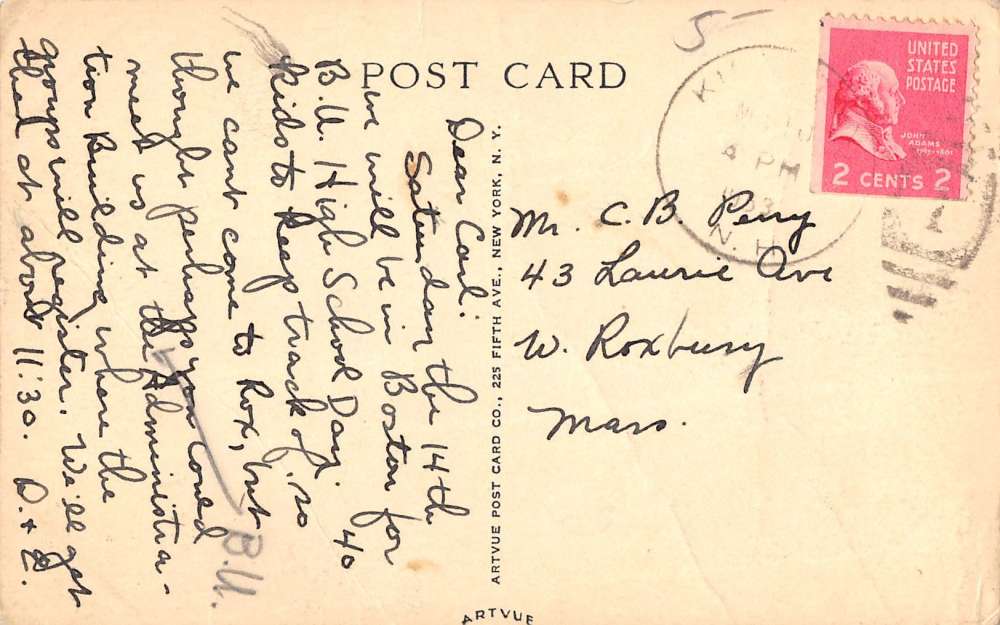 POST CARD
5-
UNITED
STATES
POSTAGE
JOHN
ADAMS
2 CENTS 2
4 PM
N.H.
Dear Carl:
Saturday the 14th
we will be in Boston for
B.U. High School Day. 40
kids to keep track of, so
we cant come to Rox, but
thought perhaps you could
meet us at the Administra-
tion Building where the
groups will register. We'll get
there at about 11:30. D. + E.
B.U.
Mr. C. B. Perry
43 Laurie Ave
W. Roxbury
Mass.
ARTVUE POST CARD CO., 225 FIFTH AVE., NEW YORK, N. Y.
ARTVUE